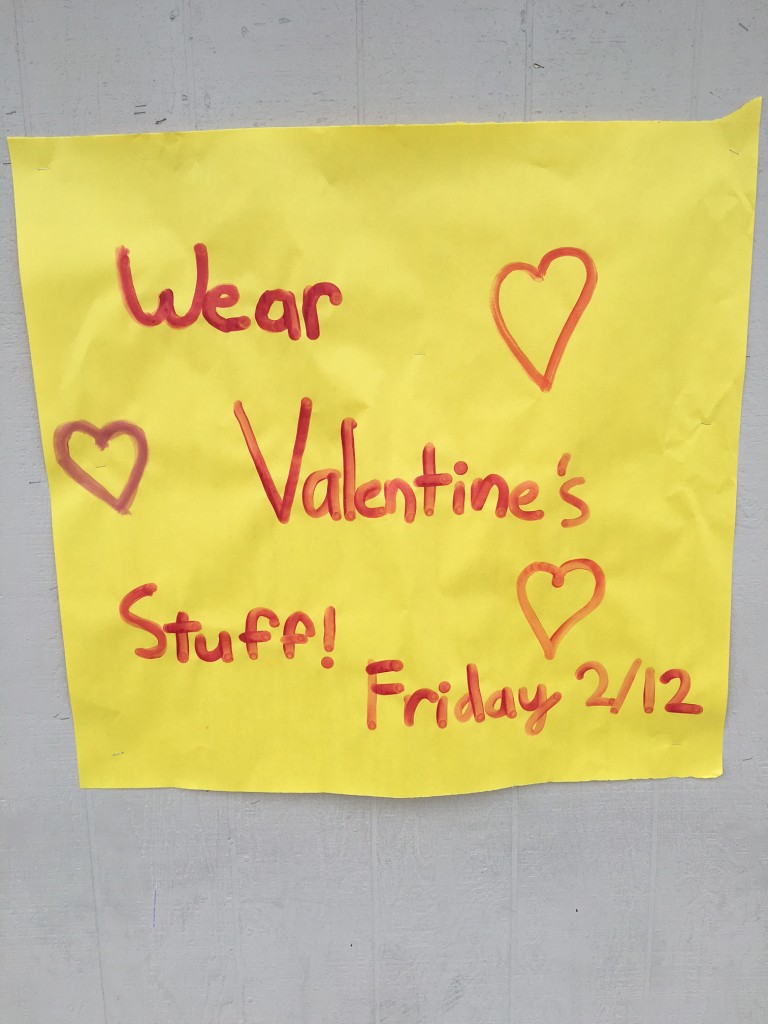 Wear
Valentine's
Stuff!
Friday 2/12